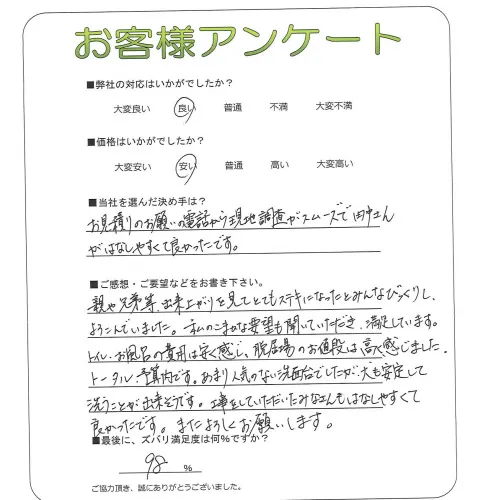 お客様アンケート
■弊社の対応はいかがでしたか？
大変良い 良い 普通 不満 大変不満
■価格はいかがでしたか？
大変安い 安い 普通 高い 大変高い
■当社を選んだ決め手は？
お見積りのお願いの電話から現地調査がスムーズで田中さん
がはなしやすくて良かったです。
■ご感想・ご要望などをお書き下さい。
親や兄弟等、出来上がりを見てとてもステキになったとみんなびっくりし、
よろこんでいました。私のこまかな要望も聞いていただき、満足しています。
トイレ、お風呂の費用は安く感じ、脱居場のお値段は高く感じました。
トータル、予算内です。あまり人気のない洗面台でしたが、犬も安定して
洗うことが出来そうです。工事をしていただいたみなさんもはなしやすくて
良かったです。またよろしくお願いします。
■最後に、ズバリ満足度は何％ですか？
98 ％
ご協力頂き、誠にありがとうございました。